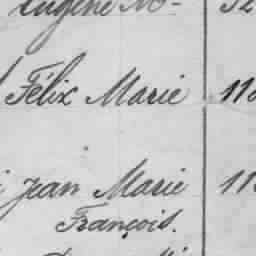 Eugène M-
Félix Marie
Jean Marie
François.